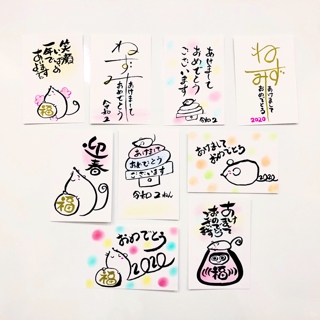 笑顔
いっぱいの
一年で
ありますように
福
ねずみ
あけまして
おめでとう
令和2
あけまして
おめでとう
ございます
令和2
ねずみ
あけまして
おめでとう
2020
迎春
福
あけまして
おめでとう
ございます
令和2ねん
あけまして
おめでとう
2020
おめでとう
2020
福
あけまして
おめでとう
福